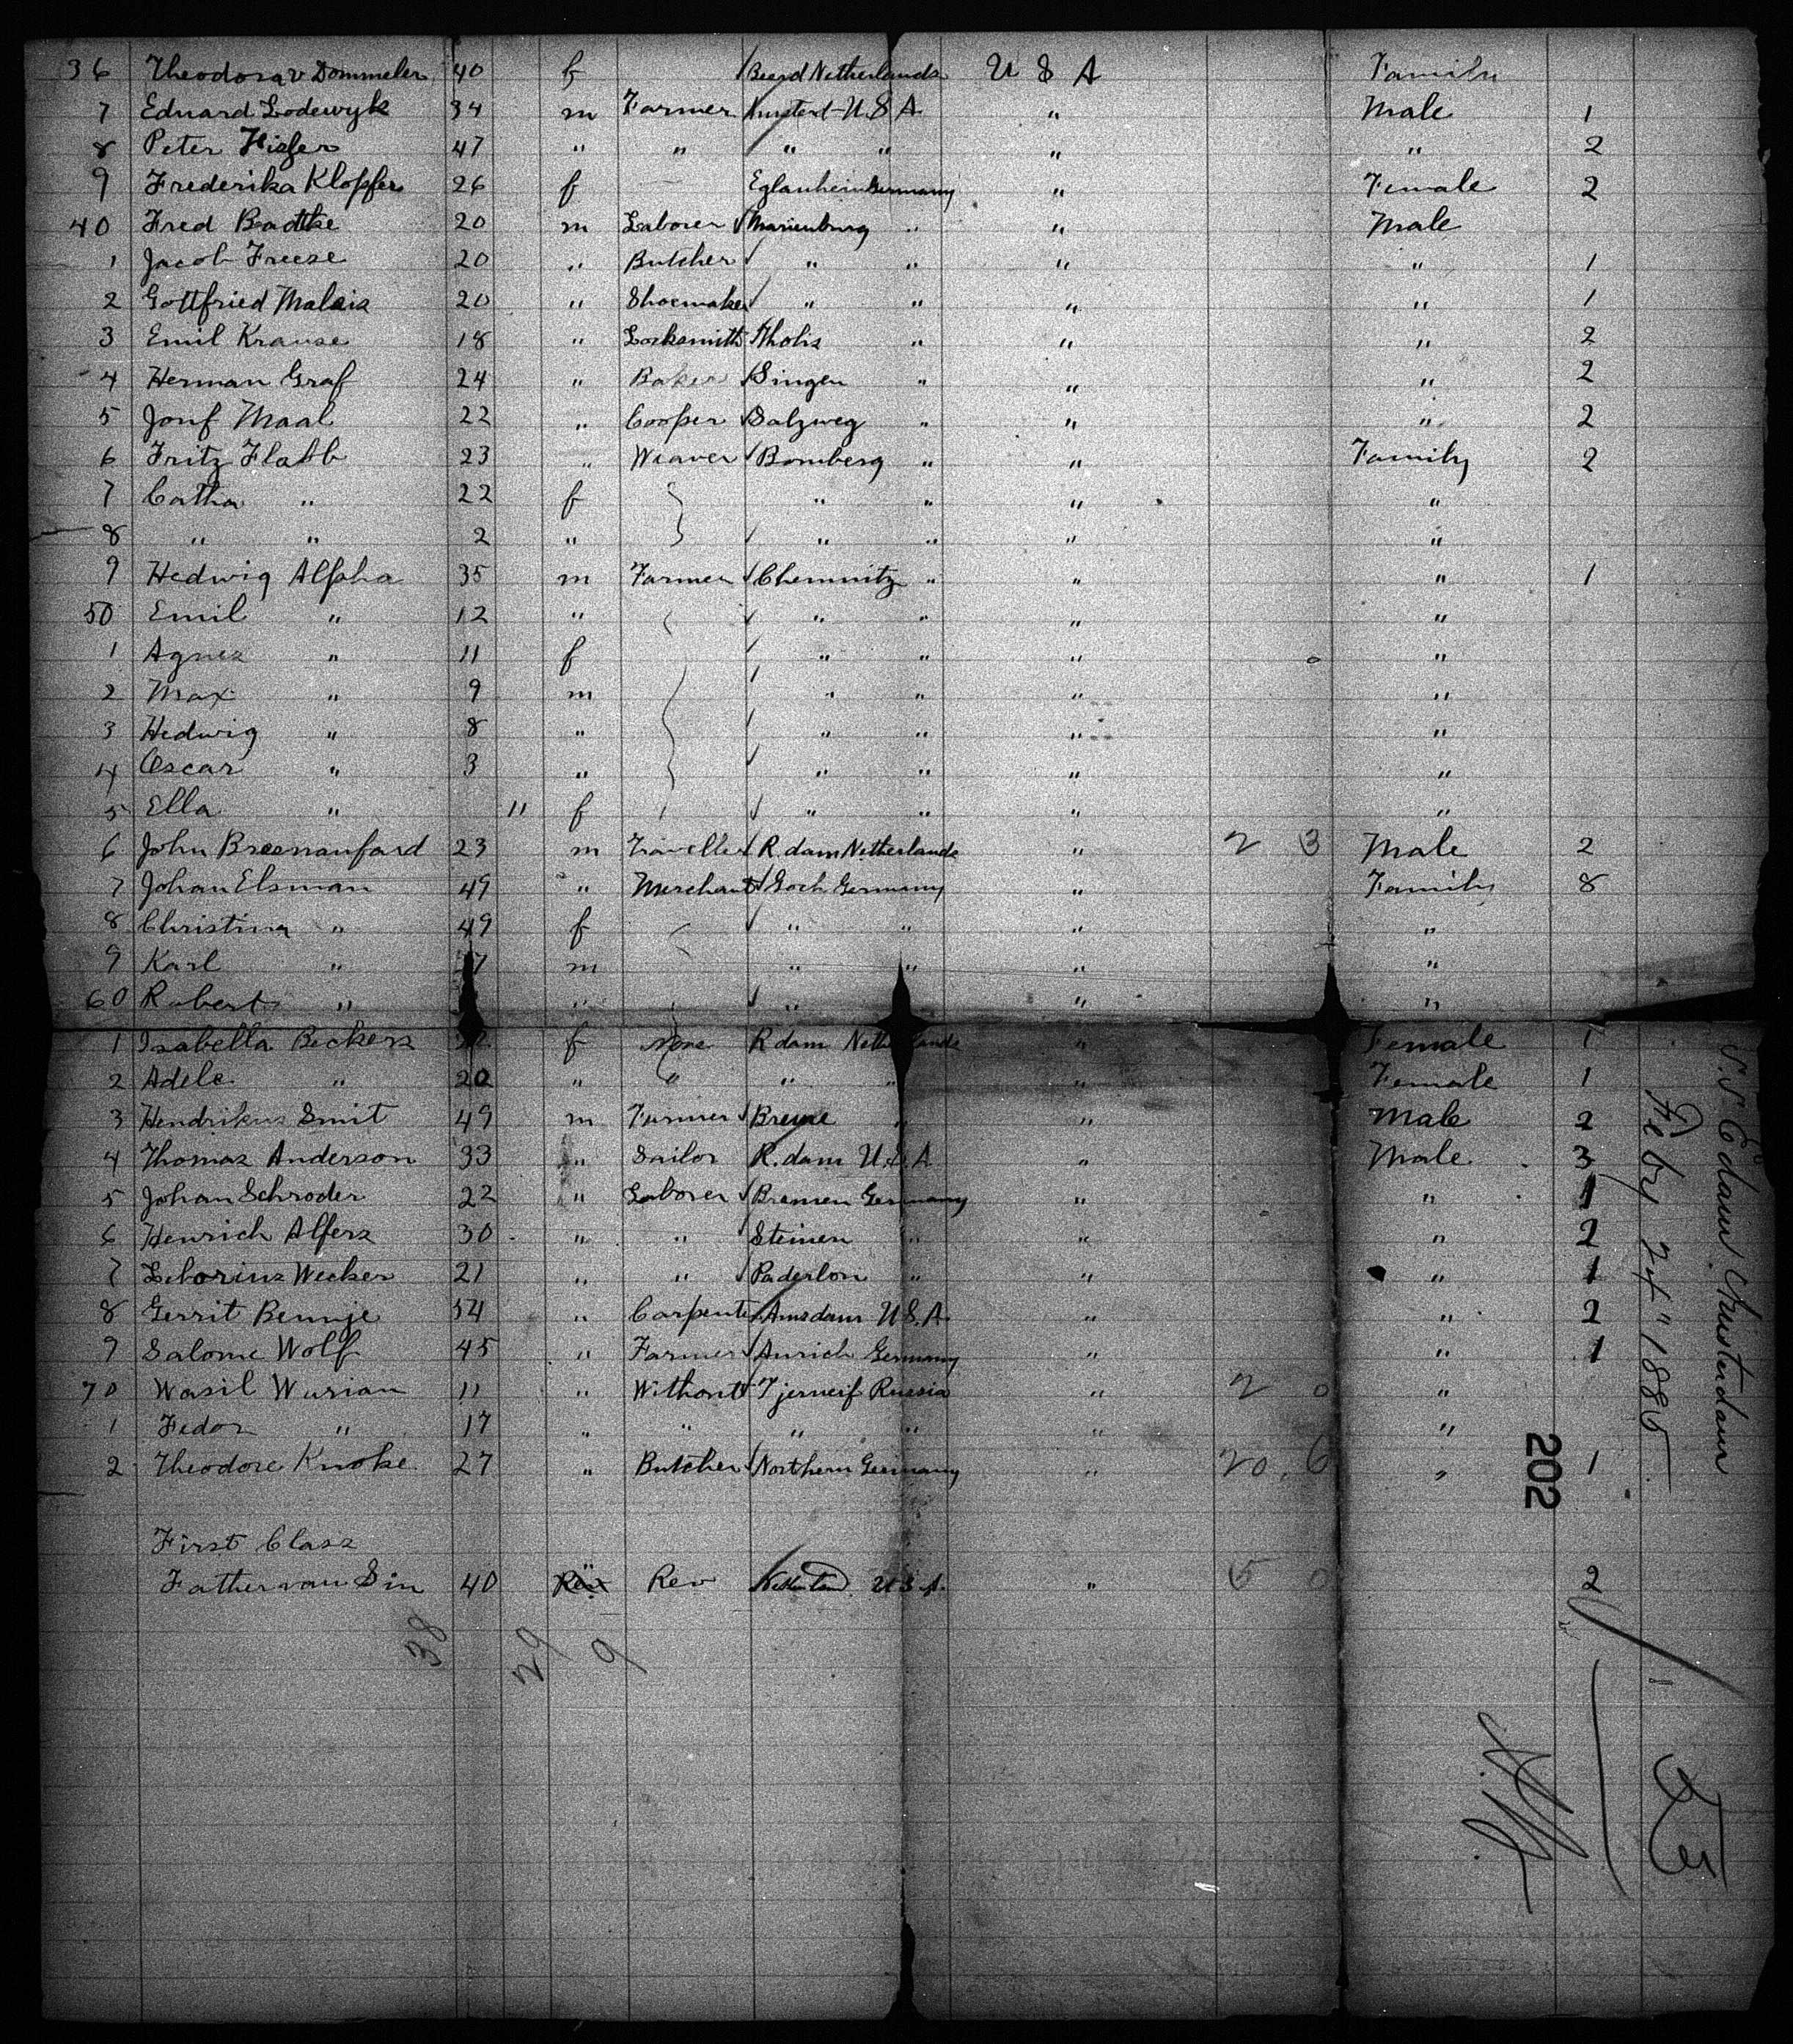 36 Theodora v Dommelen 40 f Beesd Netherlands U S A Family
7 Eduard Lodewyk 34 m Farmer Amsterd - U.S.A. " Male 1
8 Peter 47 " " " " " " 2
9 Frederika Klopfer 26 f Germany " Female 2
40 Fred Badtke 20 m Laborer Marienburg " " Male
1 Jacob Freese 20 " Butcher " " " " 1
2 Gottfried 20 " Shoemaker " " " " 1
3 Emil Krause 18 " Locksmith " " " 2
4 Herman Graf 24 " Baker Singen " " " 2
5 Maal 22 " Cooper Salzweg " " " 2
6 Fritz 23 " Weaver Bomberg " " Family 2
7 Catha " 22 f " " " "
8 " " 2 " " " " "
9 Hedwig Alpha 35 m Farmer Chemnitz " " " 1
50 Emil " 12 " " " " "
1 Agnes " 11 f " " " "
2 Max " 9 m " " " "
3 Hedwig " 8 " " " " "
4 Oscar " 3 " " " " "
5 Ella " 11 f " " " "
6 John 23 m Traveller R.dam Netherlands " 2 3 Male 2
7 Johan Elsman 49 " Merchant Goch Germany " Family 8
8 Christina " 49 f " " " "
9 Karl " m " " " "
60 Robert " " " " "
1 Isabella Beckers f None R dam Netherlands " Female 1
2 Adele " 20 " " " " " Female 1
3 Hendrikus Smit 49 m Farmer " " Male 2
4 Thomas Anderson 33 " Sailor R.dam U.S.A " Male 3
5 Johan Schroder 22 " Laborer Bremen Germany " " 1
6 Henrich Alfers 30 " " Steinen " " " 2
7 Liborius Wecker 21 " " Paderbon " " " 1
8 Gerrit Bennje 54 " Carpenter Amsdam U.S.A. " " 2
9 Salome Wolf 45 " Farmer Aurich Germany " " 1
70 Wasil Wurian 11 " Without Russia " 2 0 "
1 Fedor " 17 " " " " " "
2 Theodore Knoke 27 " Butcher Northern Germany " 20. 6 " 1
First Class
Father van Sin 40 Rev U.S.A. " 5 0 2
38 29 9
S.S. Edam.
Feby 24" 1885
202